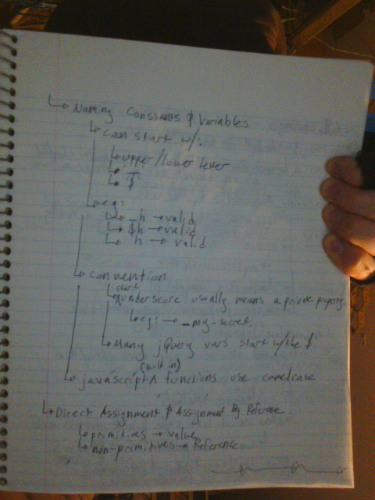 ↳ Naming Constants & Variables
↳ can start w/:
↳ upper/lower letter
↳ _
↳ $
↳ eg:
↳ _h → valid
↳ $h → valid
↳ h → valid
↳ convention
start
↳ underscore usually means a private property.
↳ eg: → _my-secret
↳ Many jQuery vars start w/the $
(built in)
↳ javascript functions use camelcase
↳ Direct Assignment & Assignment By Reference
↳ primitives → value
↳ non-primitives → Reference